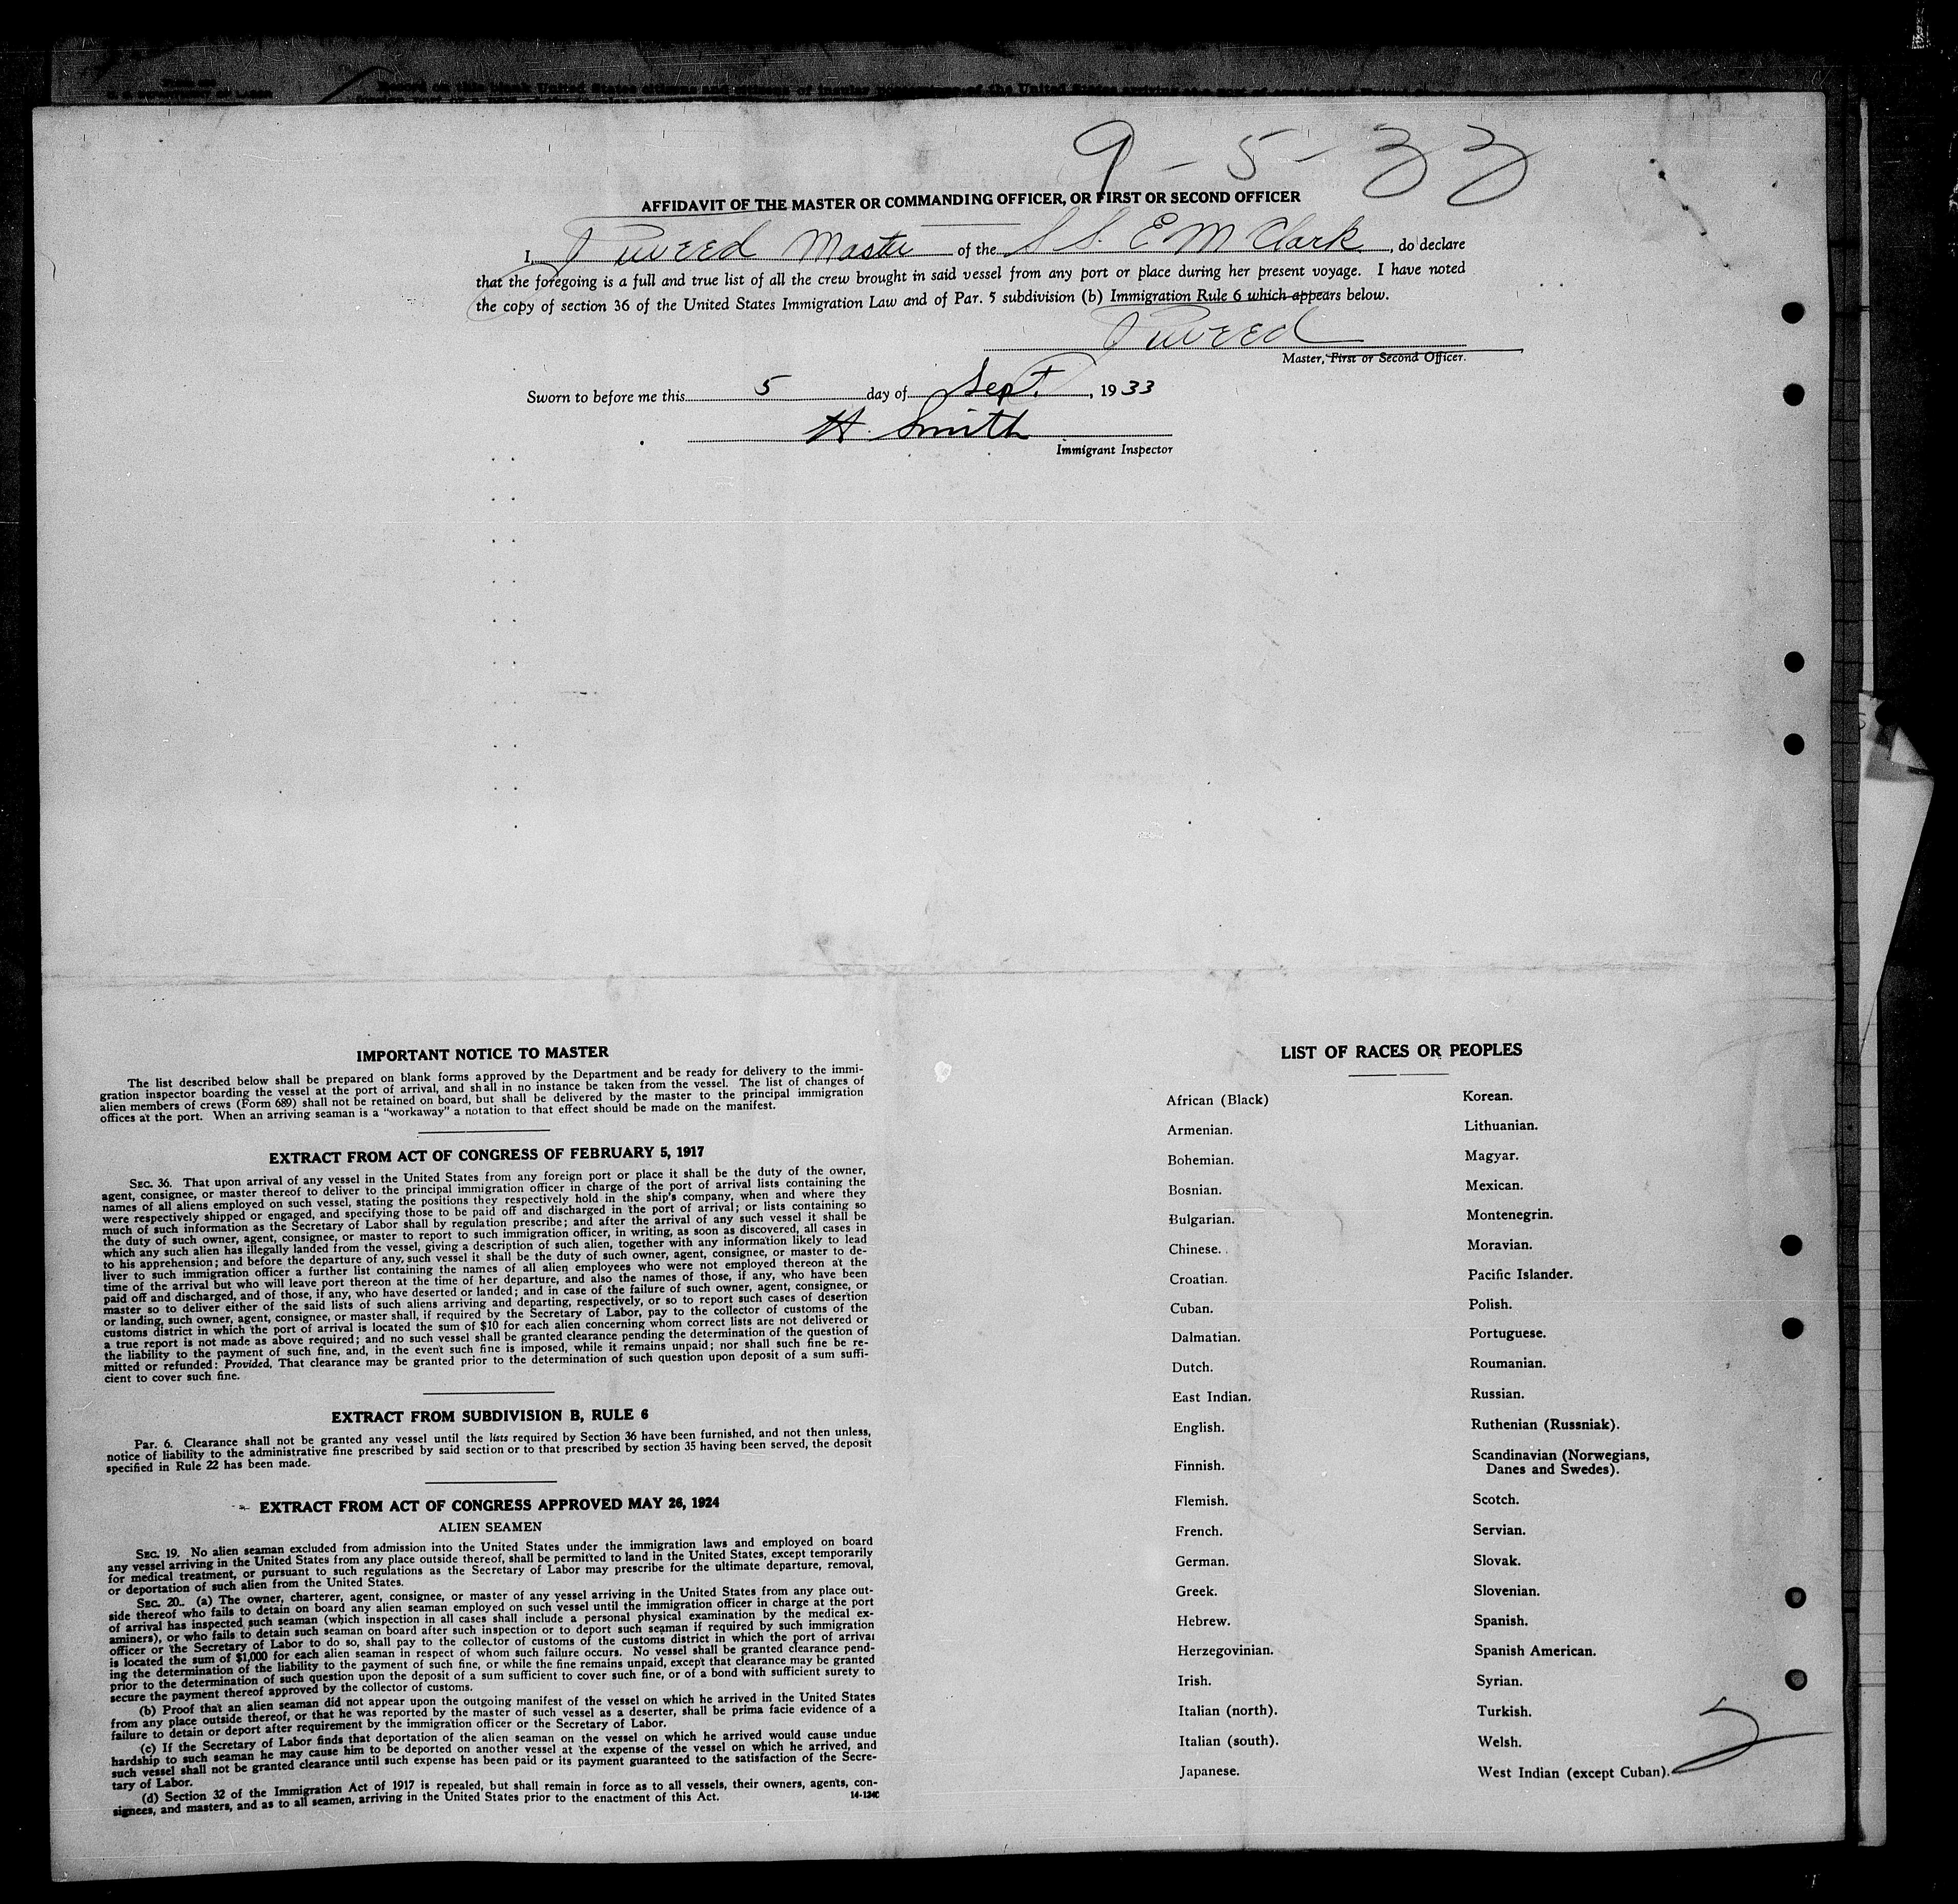 9-5-33
AFFIDAVIT OF THE MASTER OR COMMANDING OFFICER, OR FIRST OR SECOND OFFICER
I, Master of the S S. E M Clark, do declare
that the foregoing is a full and true list of all the crew brought in said vessel from any port or place during her present voyage. I have noted
the copy of section 36 of the United States Immigration Law and of Par. 5 subdivision (b) Immigration Rule 6 which appears below.
Master, First or Second Officer.
Sworn to before me this 5 day of Sept., 1933
H. Smith
Immigrant Inspector
IMPORTANT NOTICE TO MASTER
The list described below shall be prepared on blank forms approved by the Department and be ready for delivery to the immi-
gration inspector boarding the vessel at the port of arrival, and shall in no instance be taken from the vessel. The list of changes of
alien members of crews (Form 689) shall not be retained on board, but shall be delivered by the master to the principal immigration
offices at the port. When an arriving seaman is a "workaway" a notation to that effect should be made on the manifest.
EXTRACT FROM ACT OF CONGRESS OF FEBRUARY 5, 1917
SEC. 36. That upon arrival of any vessel in the United States from any foreign port or place it shall be the duty of the owner,
agent, consignee, or master thereof to deliver to the principal immigration officer in charge of the port of arrival lists containing the
names of all aliens employed on such vessel, stating the positions they respectively hold in the ship's company, when and where they
were respectively shipped or engaged, and specifying those to be paid off and discharged in the port of arrival; or lists containing so
much of such information as the Secretary of Labor shall by regulation prescribe; and after the arrival of any such vessel it shall be
the duty of such owner, agent, consignee, or master to report to such immigration officer, in writing, as soon as discovered, all cases in
which any such alien has illegally landed from the vessel, giving a description of such alien, together with any information likely to lead
to his apprehension; and before the departure of any such vessel it shall be the duty of such owner, agent, consignee, or master to de-
liver to such immigration officer a further list containing the names of all alien employees who were not employed thereon at the
time of the arrival but who will leave port thereon at the time of her departure, and also the names of those, if any, who have been
paid off and discharged, and of those, if any, who have deserted or landed; and in case of the failure of such owner, agent, consignee, or
master so to deliver either of the said lists of such aliens arriving and departing, respectively, or so to report such cases of desertion
or landing, such owner, agent, consignee, or master shall, if required by the Secretary of Labor, pay to the collector of customs of the
customs district in which the port of arrival is located the sum of $10 for each alien concerning whom correct lists are not delivered or
a true report is not made as above required; and no such vessel shall be granted clearance pending the determination of the question of
the liability to the payment of such fine, and, in the event such fine is imposed, while it remains unpaid; nor shall such fine be re-
mitted or refunded: Provided, That clearance may be granted prior to the determination of such question upon deposit of a sum suffi-
cient to cover such fine.
EXTRACT FROM SUBDIVISION B, RULE 6
Par. 6. Clearance shall not be granted any vessel until the lists required by Section 36 have been furnished, and not then unless,
notice of liability to the administrative fine prescribed by said section or to that prescribed by section 35 having been served, the deposit
specified in Rule 22 has been made.
EXTRACT FROM ACT OF CONGRESS APPROVED MAY 26, 1924
ALIEN SEAMEN
SEC. 19. No alien seaman excluded from admission into the United States under the immigration laws and employed on board
any vessel arriving in the United States from any place outside thereof, shall be permitted to land in the United States, except temporarily
for medical treatment, or pursuant to such regulations as the Secretary of Labor may prescribe for the ultimate departure, removal,
or deportation of such alien from the United States.
SEC. 20. (a) The owner, charterer, agent, consignee, or master of any vessel arriving in the United States from any place out-
side thereof who fails to detain on board any alien seaman employed on such vessel until the immigration officer in charge at the port
of arrival has inspected such seaman (which inspection in all cases shall include a personal physical examination by the medical ex-
aminers), or who fails to detain such seaman on board after such inspection or to deport such seaman if required by such immigration
officer or the Secretary of Labor to do so, shall pay to the collector of customs of the customs district in which the port of arrival
is located the sum of $1,000 for each alien seaman in respect of whom such failure occurs. No vessel shall be granted clearance pend-
ing the determination of the liability to the payment of such fine, or while the fine remains unpaid, except that clearance may be granted
prior to the determination of such question upon the deposit of a sum sufficient to cover such fine, or of a bond with sufficient surety to
secure the payment thereof approved by the collector of customs.
(b) Proof that an alien seaman did not appear upon the outgoing manifest of the vessel on which he arrived in the United States
from any place outside thereof, or that he was reported by the master of such vessel as a deserter, shall be prima facie evidence of a
failure to detain or deport after requirement by the immigration officer or the Secretary of Labor.
(c) If the Secretary of Labor finds that deportation of the alien seaman on the vessel on which he arrived would cause undue
hardship to such seaman he may cause him to be deported on another vessel at the expense of the vessel on which he arrived, and
such vessel shall not be granted clearance until such expense has been paid or its payment guaranteed to the satisfaction of the Secre-
tary of Labor.
(d) Section 32 of the Immigration Act of 1917 is repealed, but shall remain in force as to all vessels, their owners, agents, con-
signees, and masters, and as to all seamen, arriving in the United States prior to the enactment of this Act.
LIST OF RACES OR PEOPLES
African (Black)
Armenian.
Bohemian.
Bosnian.
Bulgarian.
Chinese.
Croatian.
Cuban.
Dalmatian.
Dutch.
East Indian.
English.
Finnish.
Flemish.
French.
German.
Greek.
Hebrew.
Herzegovinian.
Irish.
Italian (north).
Italian (south).
Japanese.
Korean.
Lithuanian.
Magyar.
Mexican.
Montenegrin.
Moravian.
Pacific Islander.
Polish.
Portuguese.
Roumanian.
Russian.
Ruthenian (Russniak).
Scandinavian (Norwegians,
Danes and Swedes).
Scotch.
Servian.
Slovak.
Slovenian.
Spanish.
Spanish American.
Syrian.
Turkish.
Welsh.
West Indian (except Cuban).